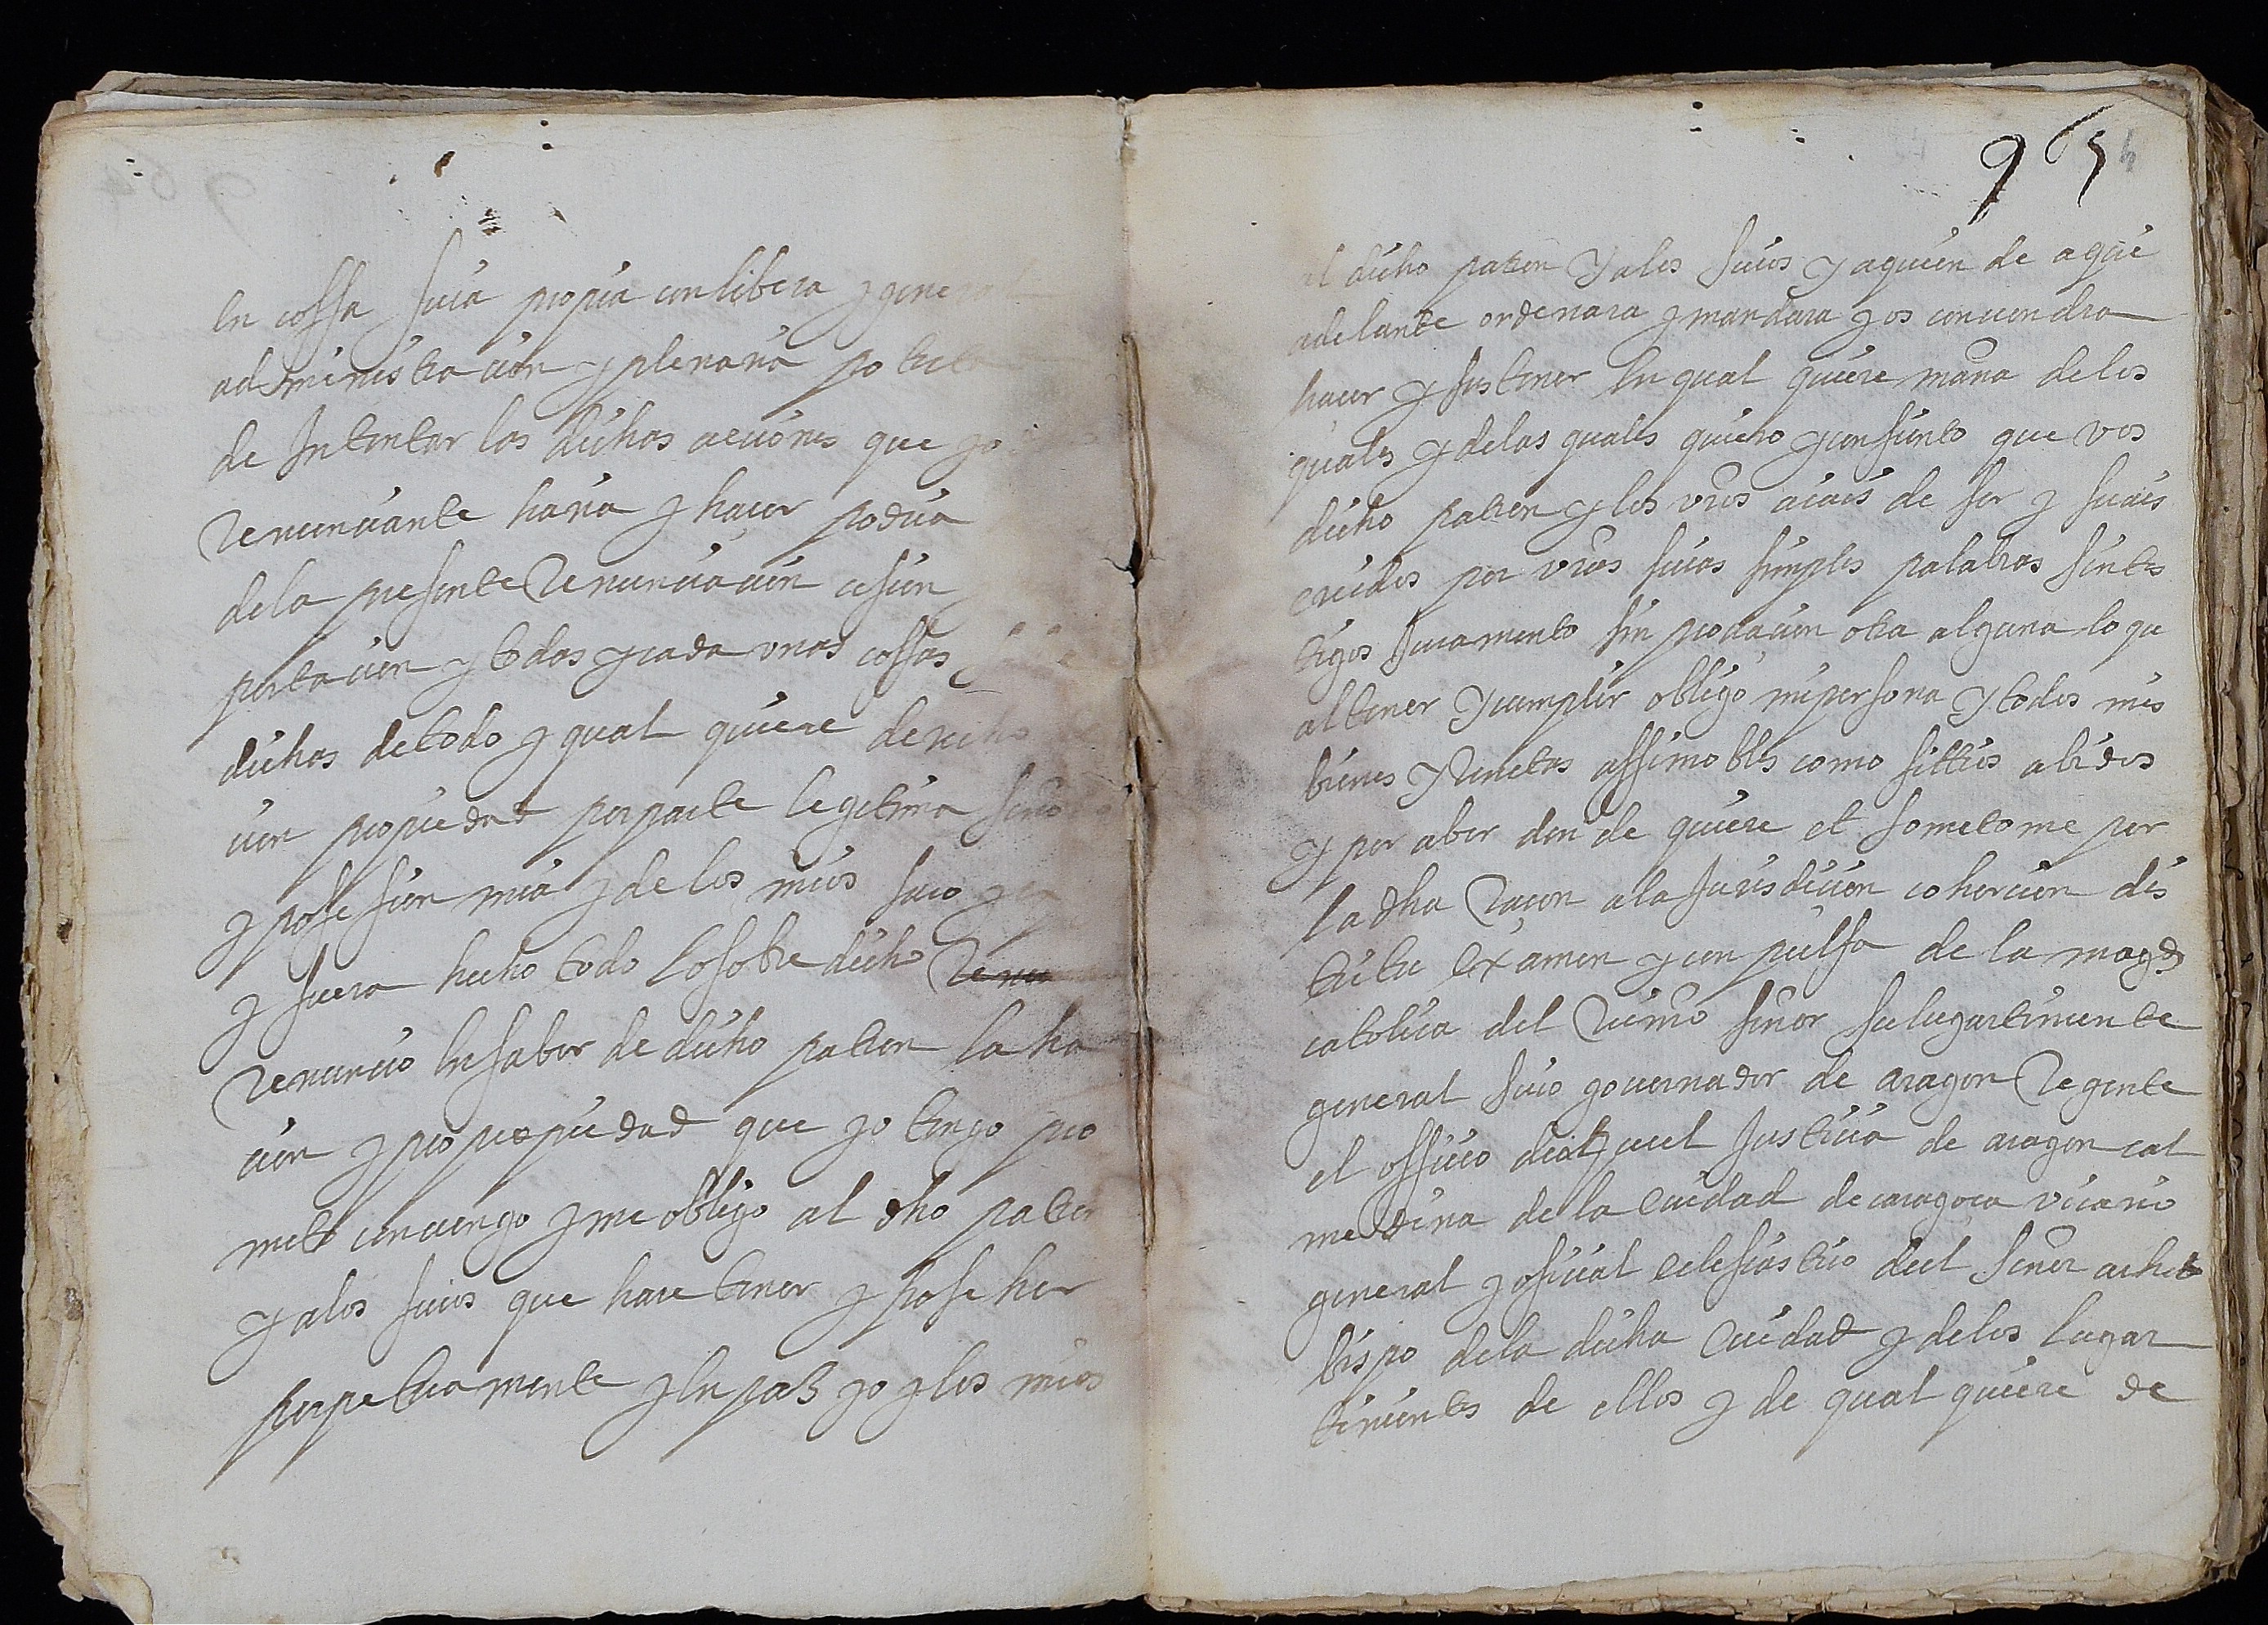 en cossa suia propia con libera y general
administracion y plenaria potesta
de Intentar las dichas acciones que yo
Renunciante haria y hacer podria
de la presente Renunciacion cesion y
portacion y todas y cada unas cossas
dichas de todo y qual quiere derecho
cion propiedad por parte legitima seño
y posesion mia y de los mios suio
y fuera hecho todo lo sobre dicho
Renuncio en fabor de dicho patron la ha
cion y pro propiedad que yo tengo pro
meto convengo y me obligo al dho patron
y a los suios que hare tener y poseher
perpetuamente y en paz yo y los mios
965
al dicho patron y a los suios y a quien de aqui
adelante ordenara y mandara y os convendra
hacer y sustener en qual quiere mana de los
quales y de las quales quiero y consiento que vos
dicho patron y los vros aiais de ser y seais
creidos por vras suias simples palabras sin tes
tigos Juramento sin probacion otra alguna lo qu
al tener y cumplir obligo mi persona y todos mis
bienes y Rentas assi mobles como sittios abidos
y por aber don de quiere et someto me por
la dha Raçon a la Jurisdicion cohercion dis
trictu examen y conpulsa de la magd
catolica del Rei nro señor su lugartiniente
general suio governador de aragon Regente
el officio de aquel Justicia de aragon cal
medina de la Ciudad de caragoca vicario
general y oficial eclesiastico del señor arheb
bispo de la dicha Ciudad y de los lugar
tinientes de ellos y de qual quiere de